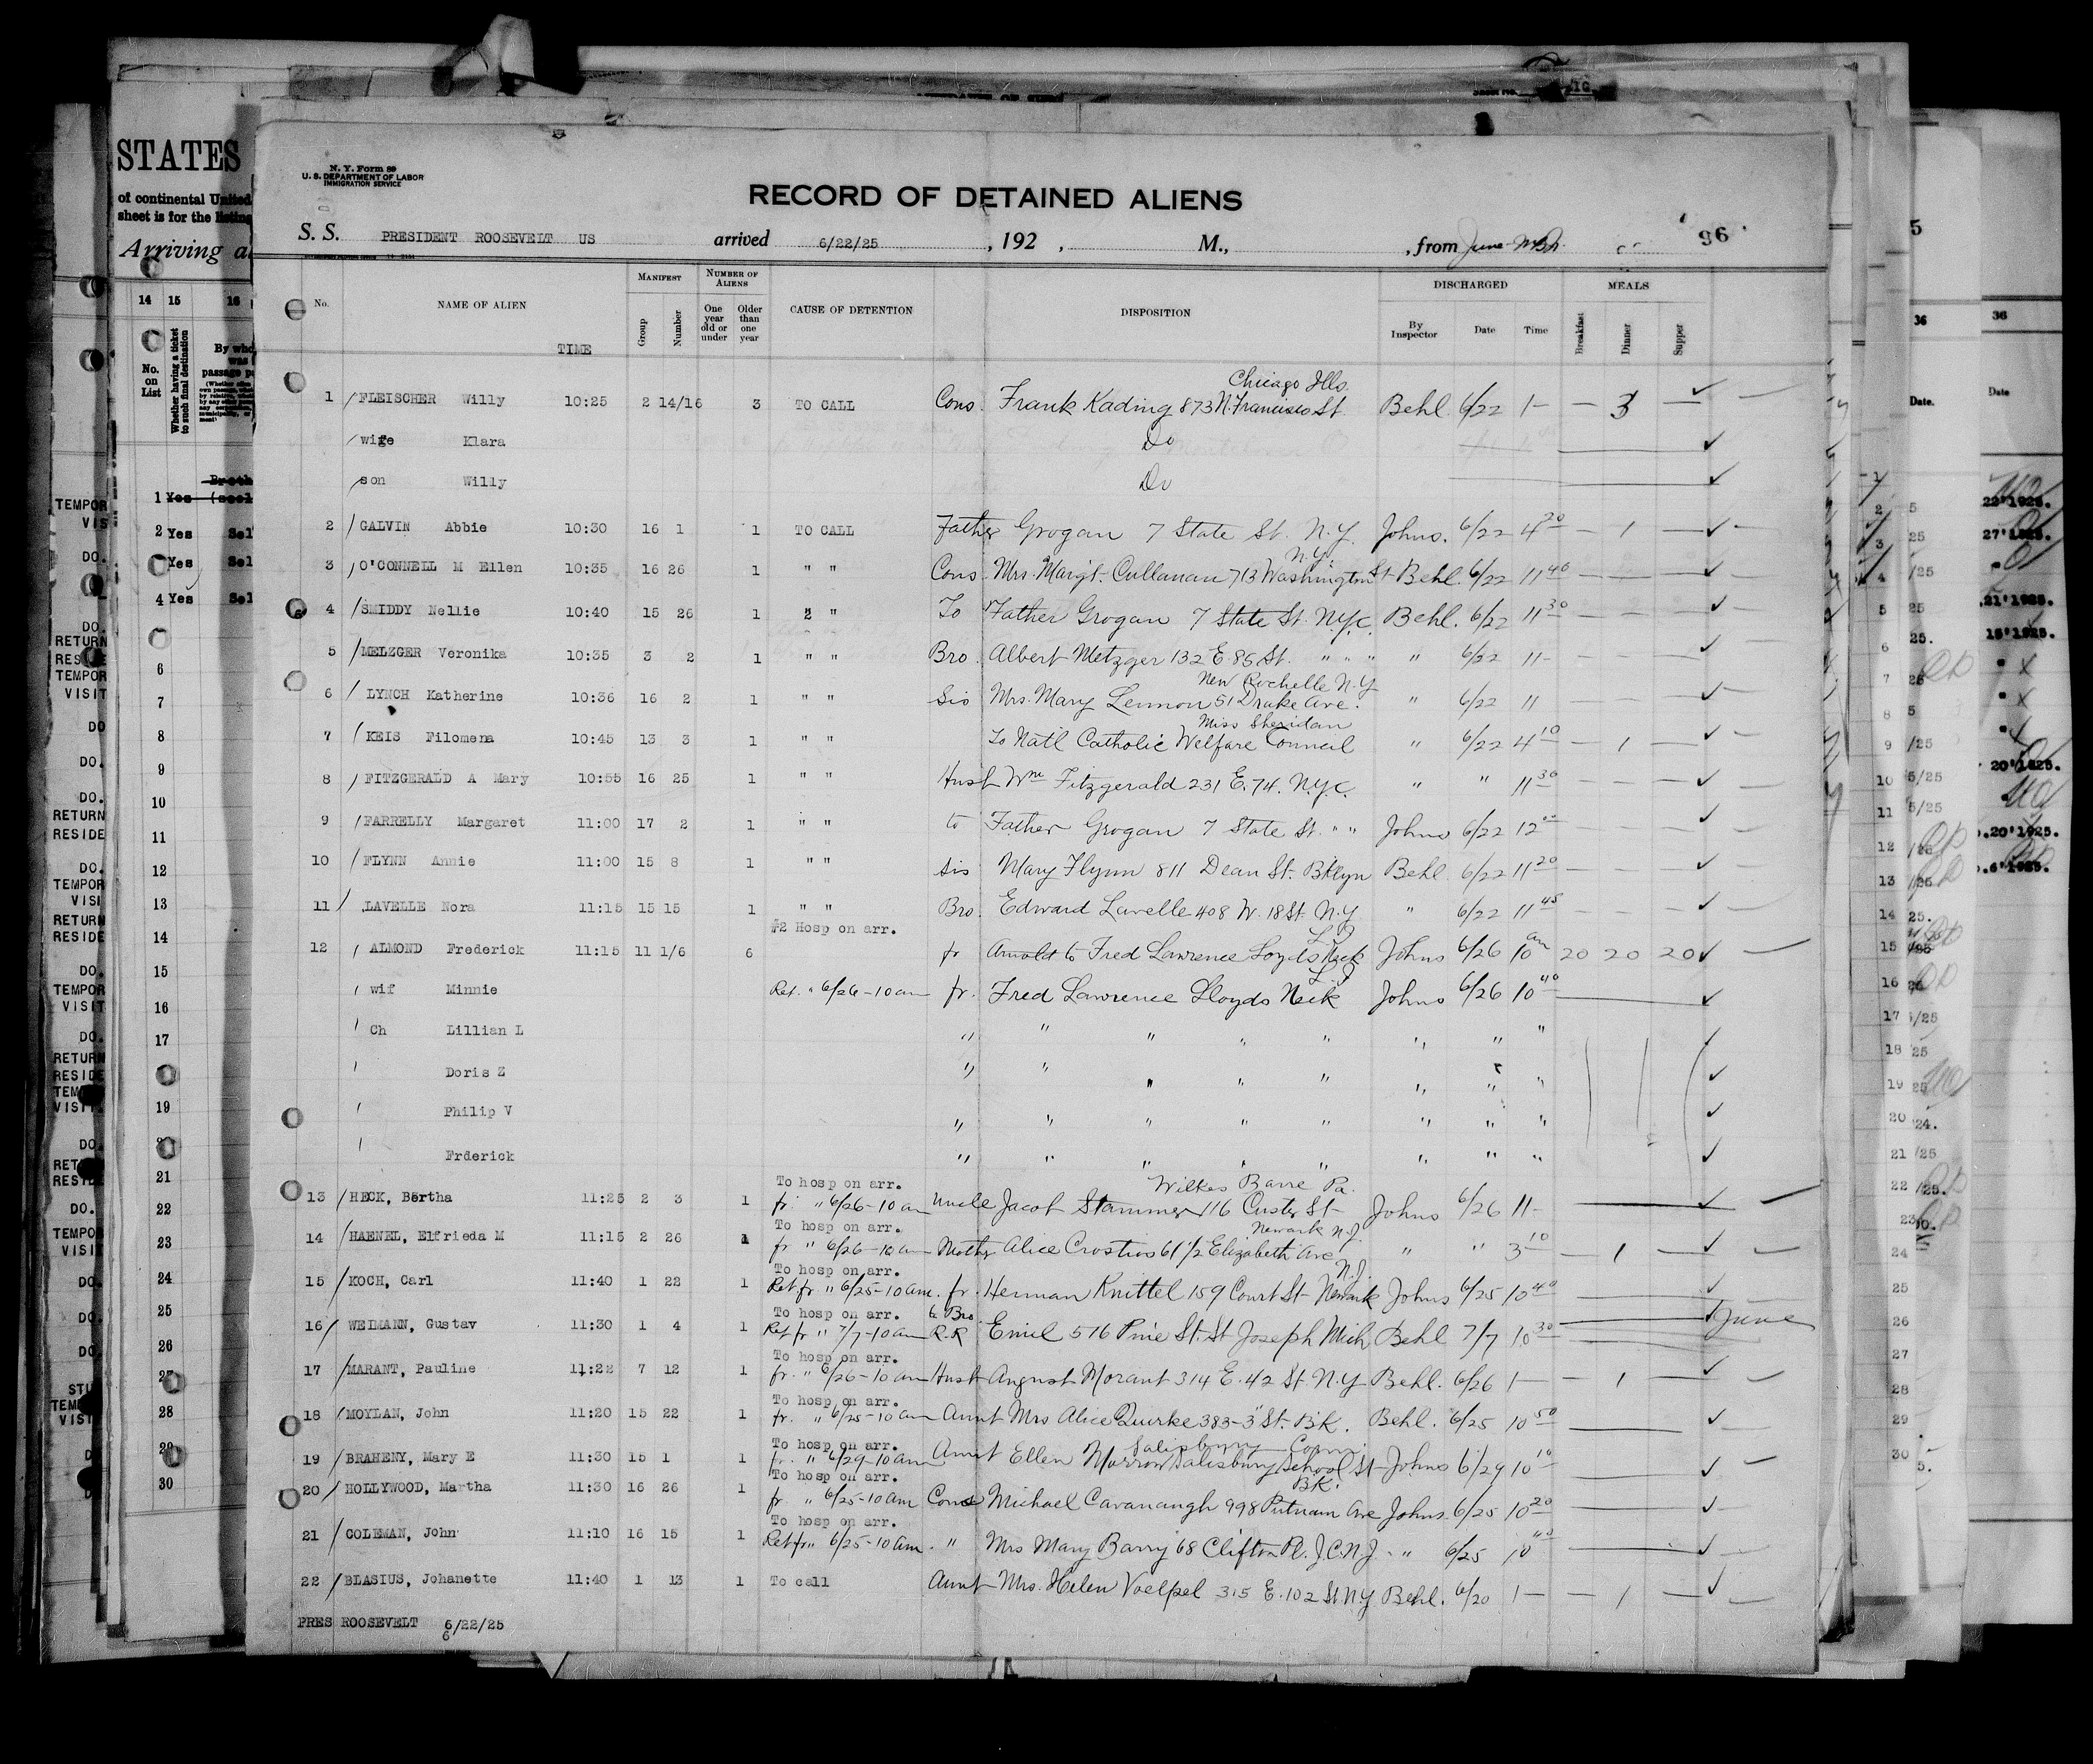 N. Y. Form 89
U. S. DEPARTMENT OF LABOR
IMMIGRATION SERVICE
RECORD OF DETAINED ALIENS
96
S. S. PRESIDENT ROOSEVELT US arrived 6/22/25, 192 , M., , from June
No. NAME OF ALIEN TIME MANIFEST Group Number NUMBER OF ALIENS One year old or under Older than one year CAUSE OF DETENTION DISPOSITION DISCHARGED By Inspector Date Time MEALS Breakfast Dinner Supper
Chicago Ills.
1 FLEISCHER Willy 10:25 2 14/16 3 TO CALL Cons. Frank Kading 873 N. Francisco St. Behl 6/22 1- — 3 —
wife Klara Do
son Willy Do
2 GALVIN Abbie 10:30 16 1 1 TO CALL Father Grogan 7 State St. N.Y. Johns. 6/22 4 20 — 1 —
N.Y.
3 O'CONNELL M Ellen 10:35 16 26 1 " " Cons. Mrs. Margt. Cullanan 713 Washington St Behl. 6/22 11 40 — — —
4 SMIDDY Nellie 10:40 15 26 1 " To Father Grogan 7 State St. N.Y.C. Behl. 6/22 11 30 — — —
5 MELZGER Veronika 10:35 3 2 1 " " Bro. Albert Metzger 132 E 85 St. " " " " 6/22 11- — — —
New Rochelle N.Y
6 LYNCH Katherine 10:36 16 2 1 " " Sis Mrs. Mary Lennon 51 Drake Ave. " 6/22 11 — — —
Miss Sheridan
7 KEIS Filomena 10:45 13 3 1 " " To Natl Catholic Welfare Council " 6/22 4 10 — 1 —
8 FITZGERALD A Mary 10:55 16 25 1 " " Husb Wm Fitzgerald 231 E. 74. N.Y.C. " " 11 30 — — —
9 FARRELLY Margaret 11:00 17 2 1 " " to Father Grogan 7 State St. " " Johns 6/22 12 00 — — —
10 FLYNN Annie 11:00 15 8 1 " " sis Mary Flynn 811 Dean St. Bklyn Behl. 6/22 11 20 — — —
11 LAVELLE Nora 11:15 15 15 1 " " Bro. Edward Lavelle 408 W. 18 St. N.Y " 6/22 11 45 — — —
#2 Hosp on arr. L.I
12 ALMOND Frederick 11:15 11 1/6 6 fr Arnold to Fred Lawrence Loyds Neck Johns 6/26 10 am 20 20 20
L.I
wif Minnie Ret. " 6/26-10 am fr. Fred Lawrence Lloyds Neck Johns 6/26 10 40
Ch Lillian L " " " " " " " "
Doris Z " " " " " " " "
Philip V " " " " " " " "
Frderick " " " " " " " "
To hosp on arr. Wilkes Barre Pa.
13 HECK, Bertha 11:25 2 3 1 fr. " 6/26-10 am Uncle Jacob Stammer 116 Custer St- Johns 6/26 11-
To hosp on arr. Newark N.J.
14 HAENEL, Elfrieda M 11:15 2 26 1 fr " 6/26-10 am Mother Alice Crostws 61 1/2 Elizabeth Ave " " 3 10 — 1 —
To hosp on arr. N.J.
15 KOCH, Carl 11:40 1 22 1 Ret fr " 6/25-10 am. fr. Herman Knittel 159 Court St- Newark Johns 6/25 10 40
To hosp on arr. to Bro.
16 WEIMANN, Gustav 11:30 1 4 1 Ret fr " 7/7-10 am R.R Emil 516 Pine St. St Joseph Mich Behl 7/7 10 30 June
To hosp on arr.
17 MARANT, Pauline 11:22 7 12 1 fr. " 6/26-10 am Husb August Morant 314 E. 42 St. N.Y Behl. 6/26 1— — 1 —
To hosp on arr.
18 MOYLAN, John 11:20 15 22 1 fr. " 6/25-10 am Aunt Mrs Alice Quirke 383-3" St. BK. Behl. 6/25 10 50
To hosp on arr. Salisbury Conn.
19 BRAHENY, Mary E 11:30 15 1 1 fr. " 6/29-10 am Aunt Ellen Morrow Salisbury School St- Johns 6/29 10 10
To hosp on arr. BK.
20 HOLLYWOOD, Martha 11:30 16 26 1 fr " 6/25-10 am Cons Michael Cavanaugh 998 Putnam Ave Johns. 6/25 10 20
To hosp on arr.
21 COLEMAN, John 11:10 16 15 1 Ret fr " 6/25-10 am. " Mrs Mary Barry 68 Clifton Pl. J.C.N.J. " 6/25 10 40
22 BLASIUS, Johanette 11:40 1 13 1 To call Aunt Mrs. Helen Voelpel 315 E. 102 St. N.Y. Behl. 6/20 1— — 1 —
PRES ROOSEVELT 6/22/25
6
STATES
of continental United
sheet is for the listing
Arriving a
14 15 16
No. on List
Whether having a ticket to such final destination
By who
was
passage p
1 Yes
2 Yes Sel
Yes Sel
4 Yes Sel
6
7
8
9
10
11
12
13
14
15
16
17
19
21
22
23
24
25
26
28
30
TEMPOR
VIS
DO.
DO.
RETURN
TEMPOR
VISIT
DO
DO.
DO.
RETURN
RESIDE
DO.
TEMPOR
VISI
RETURN
RESIDE
DO.
TEMPOR
VISIT
DO.
RETURN
RESIDE
DO.
DO.
TEMPOR
VISIT
DO.
DO.
DO.
5
36
Date.
36
Date